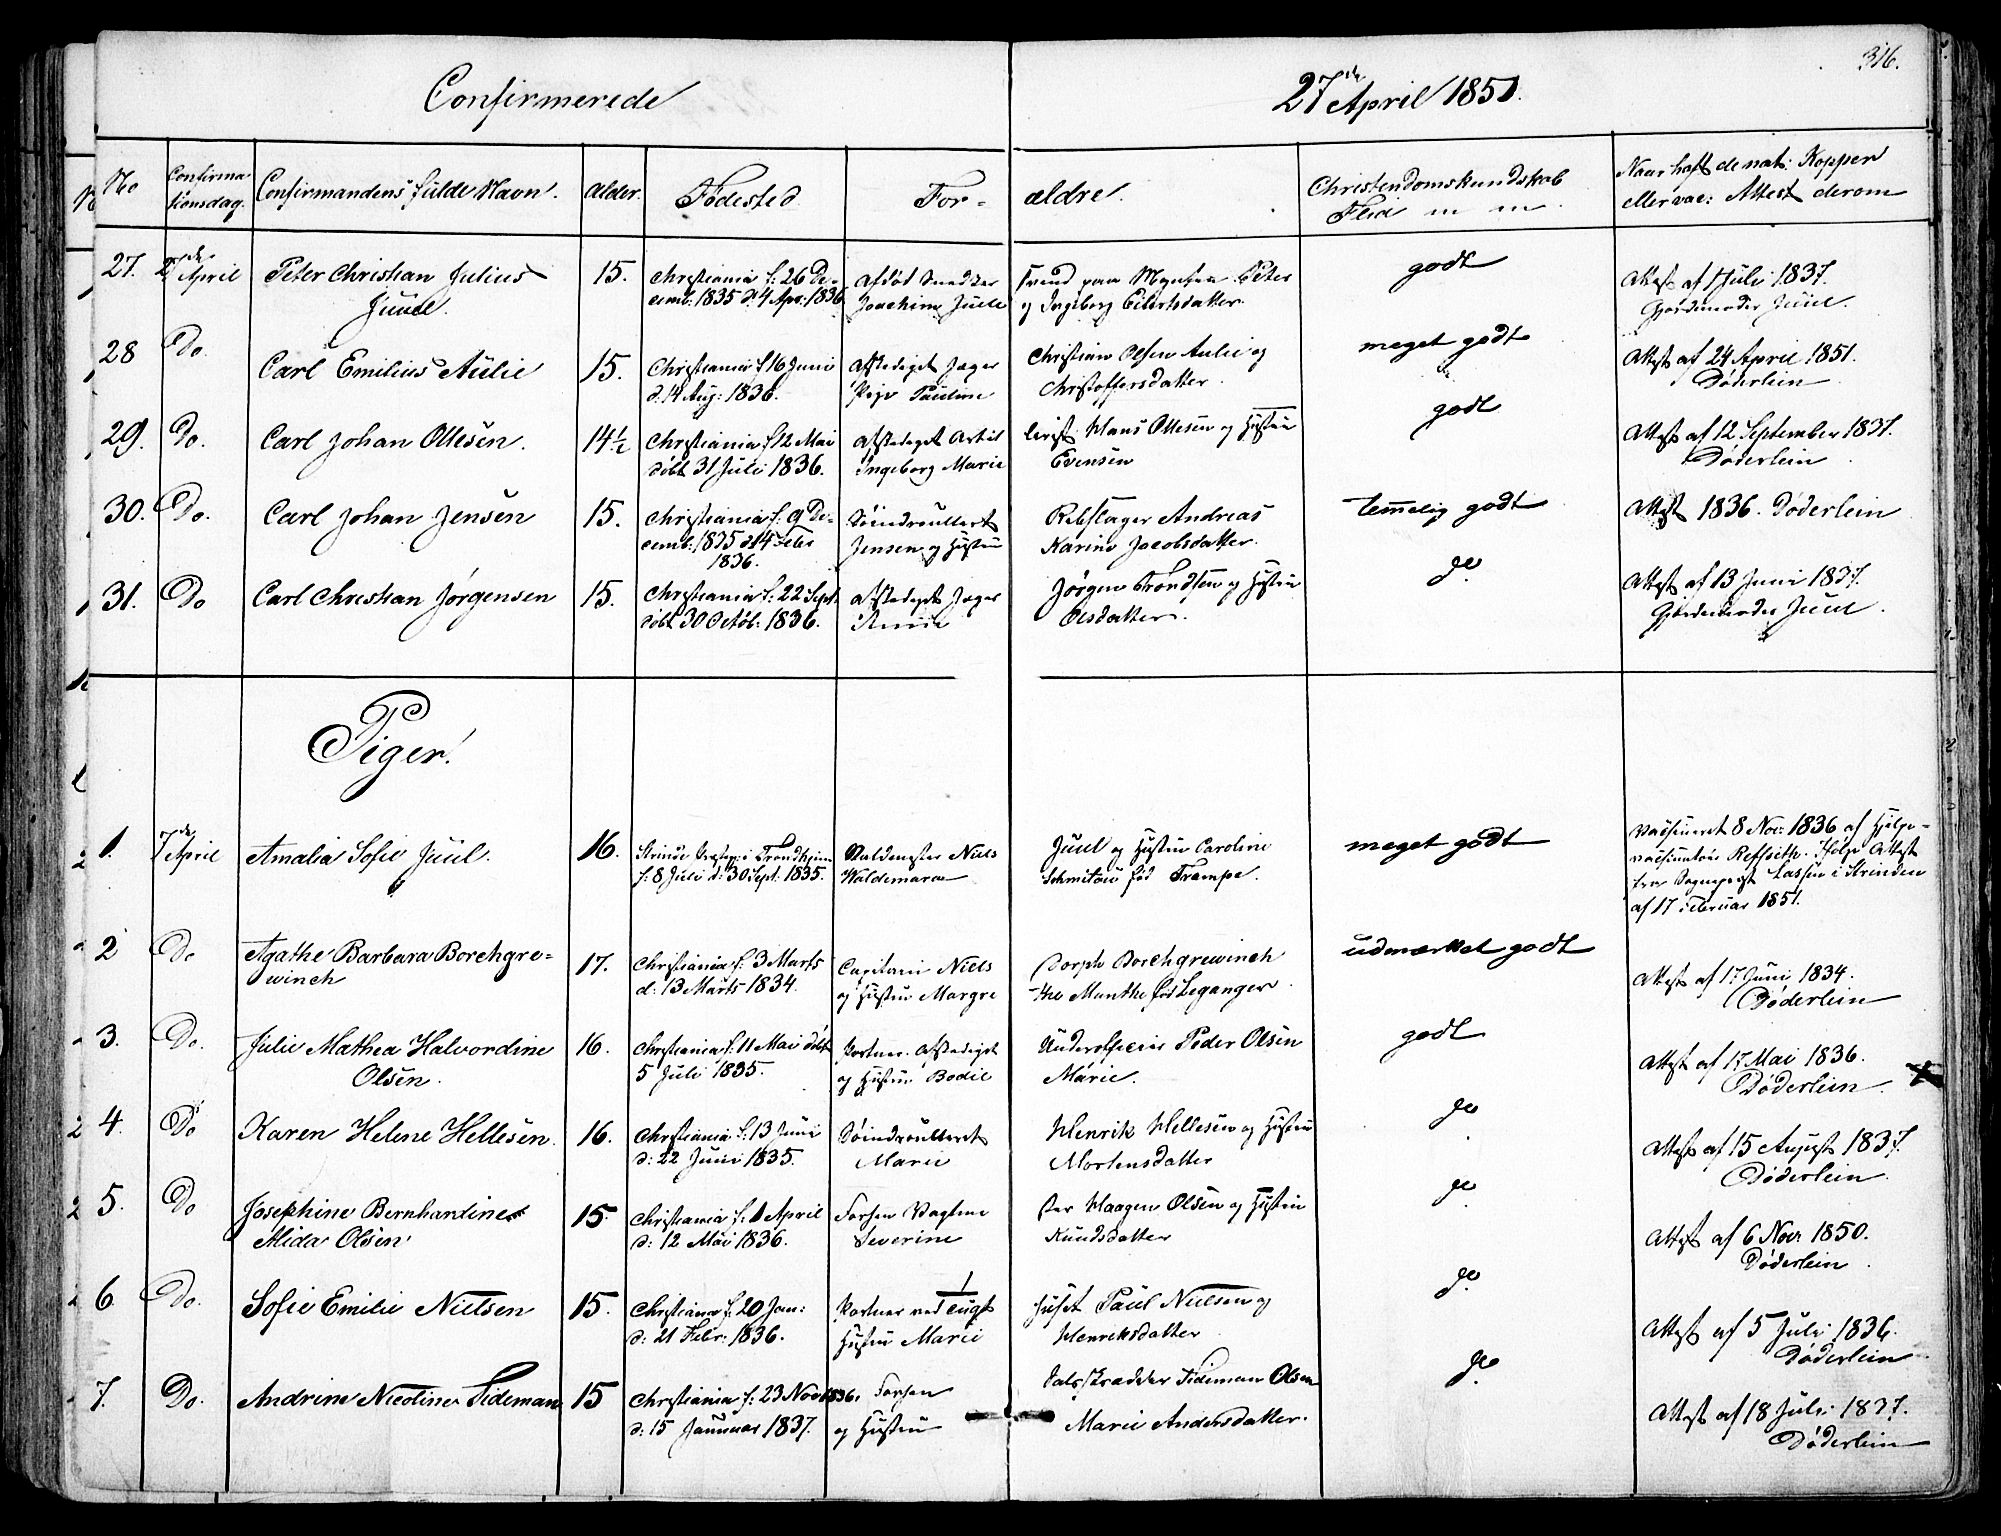 316.
Confirmerede 27de April 1851.
No Confirmationsdag. Confirmandens fulde Navn. Alder. Fødested. For- ældre. Christendomskundskab Flid m m Naar haft de nat: Kopper eller vac: Attest derom
27. 27de April Peter Christian Julius 15. Christiania f: 26 De- Afdød Snedker Svend paa Mynten Peter godt Attest af 1 Juli 1837.
Juul. cemb: 1835 d: 4 Apr: 1836 Joachim Juul og Ingeborg Eilertsdatter. Gjordemoder Juul.
28 Do Carl Emilius Aulie 15. Christiania f 16 Juni Afskediget Jæger Christian Olsen Aulie og meget godt Attest af 24 April 1851.
d. 14 Aug: 1836. Pige Pauline Christoffersdatter. Døderlein
29. Do. Carl Johan Ottesen. 14½ Christiania f 12 Mai Afskediget Artil lerist Hans Ottesen og Hustru godt Attest af 12 September 1837.
døbt 31 Juli 1836. Ingeborg Marie Evensen Døderlein
30. Do. Carl Johan Jensen 15. Christiania f. 9 De- Søindroulleret Rebslager Andreas temelig godt Attest 1836. Døderlein
cemb: 1835 d 14 Febr Jensen og Hustru Karine Jacobsdatter.
1836.
31. Do Carl Christian Jørgensen 15. Christiania f: 22 Sept. Afskediget Jæger Jørgen Trondsen og Hustru do. Attest af 13 Juni 1837.
døbt 30 Octob: 1836. Olsdatter. Gjordemoder Juul.
Piger.
1. 27de April Amalia Sofie Juul. 16. Strinde Præstegj: i Trondhjem Waldemester Niels Juul og Hustru Caroline meget godt Vaccineret 8 Nov: 1836 af Hjelpe-
f: 8 Juli d: 30 Sept: 1835. Waldemar Schmitow fød Trampe. vaccinatør Ifølge Attest
fra Sognepræst Lassen i Strinden
af 17 Februar 1851.
2 Do Agathe Barbara Borchgre- 17. Christiania f. 3 Marts Capitain Niels Dorph Borchgrewinch udmærket godt Attest af 17 Juni 1834.
winch d: 13 Marts 1834. og Hustru Margre the Munthe fød Leganger. Døderlein
3. Do. Julie Mathea Halvordine 16. Christiania f. 11 Mai døbt Portner. Afskediget Underofficeer Peder Olsen godt Attest af 17 Mai 1836.
Olsen. 5 Juli 1835. og Hustru Bodil Marie. Døderlein
4. Do Karen Helene Hellesen. 16. Christiania f. 13 Juni Søindroulleret Henrik Hellesen og Hustru do Attest af 15 August 1837.
d: 22 Juni 1835. Marie Mortensdatter Døderlein
5. Do Josephine Bernhardine 15. Christiania f. 1 April Forhen Vagtme ster Haagen Olsen og Hustru do Attest af 6 Nov 1850.
Alida Olsen d: 12 Mai 1836. Severine Knudsdatter Døderlein
6. Do. Sofie Emilie Nielsen 15. Christiania f: 20 Jan: Portner ved Tugt huset Paul Nielsen og do. Attest af 5 Juli 1836.
d: 21 Febr: 1836. Hustru Marie Henriksdatter Døderlein
7. Do. Andrine Nicoline Tideman 15 Christiania f: 23 Nov 1836. Forhen Halsstrædder Tideman Olsen do. Attest af 18 Juli 1837.
d: 15 Januar 1837. og Hustru Marie Andersdatter. Døderlein